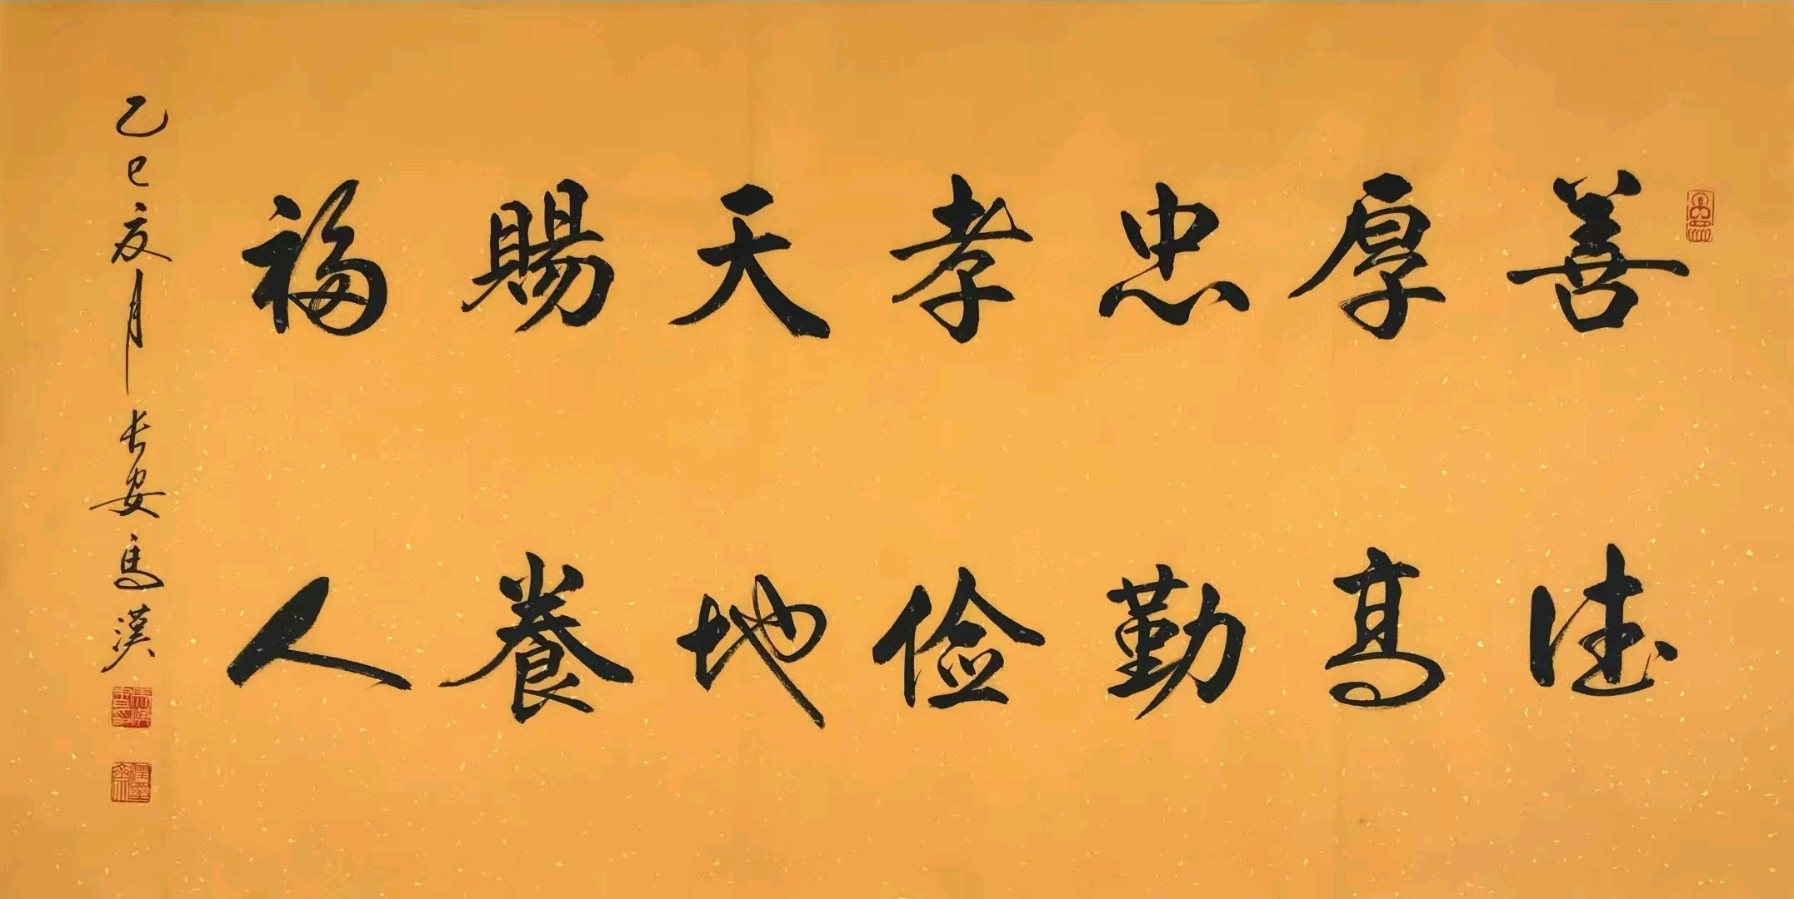 善厚忠孝天賜福
德高勤俭地養人
乙巳夏月长安馬漢